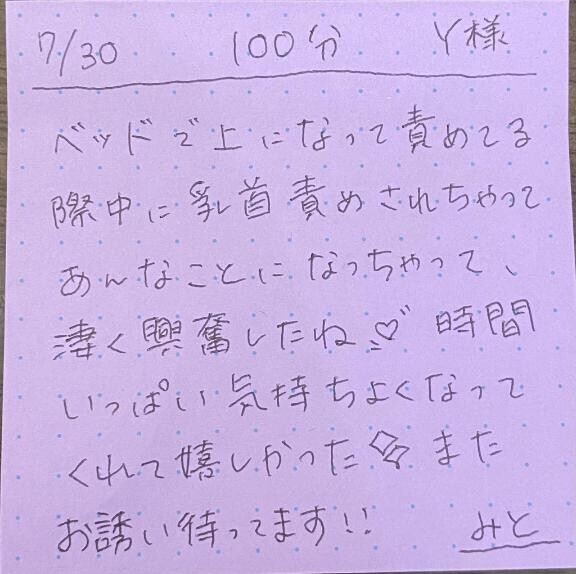 7/30 100分 Y様
ベッドで上になって責めてる
際中に乳首責めされちゃって
あんなことになっちゃって、
凄く興奮したね♡ 時間
いっぱい気持ちよくなって
くれて嬉しかった またお
お誘い待ってます!! みと